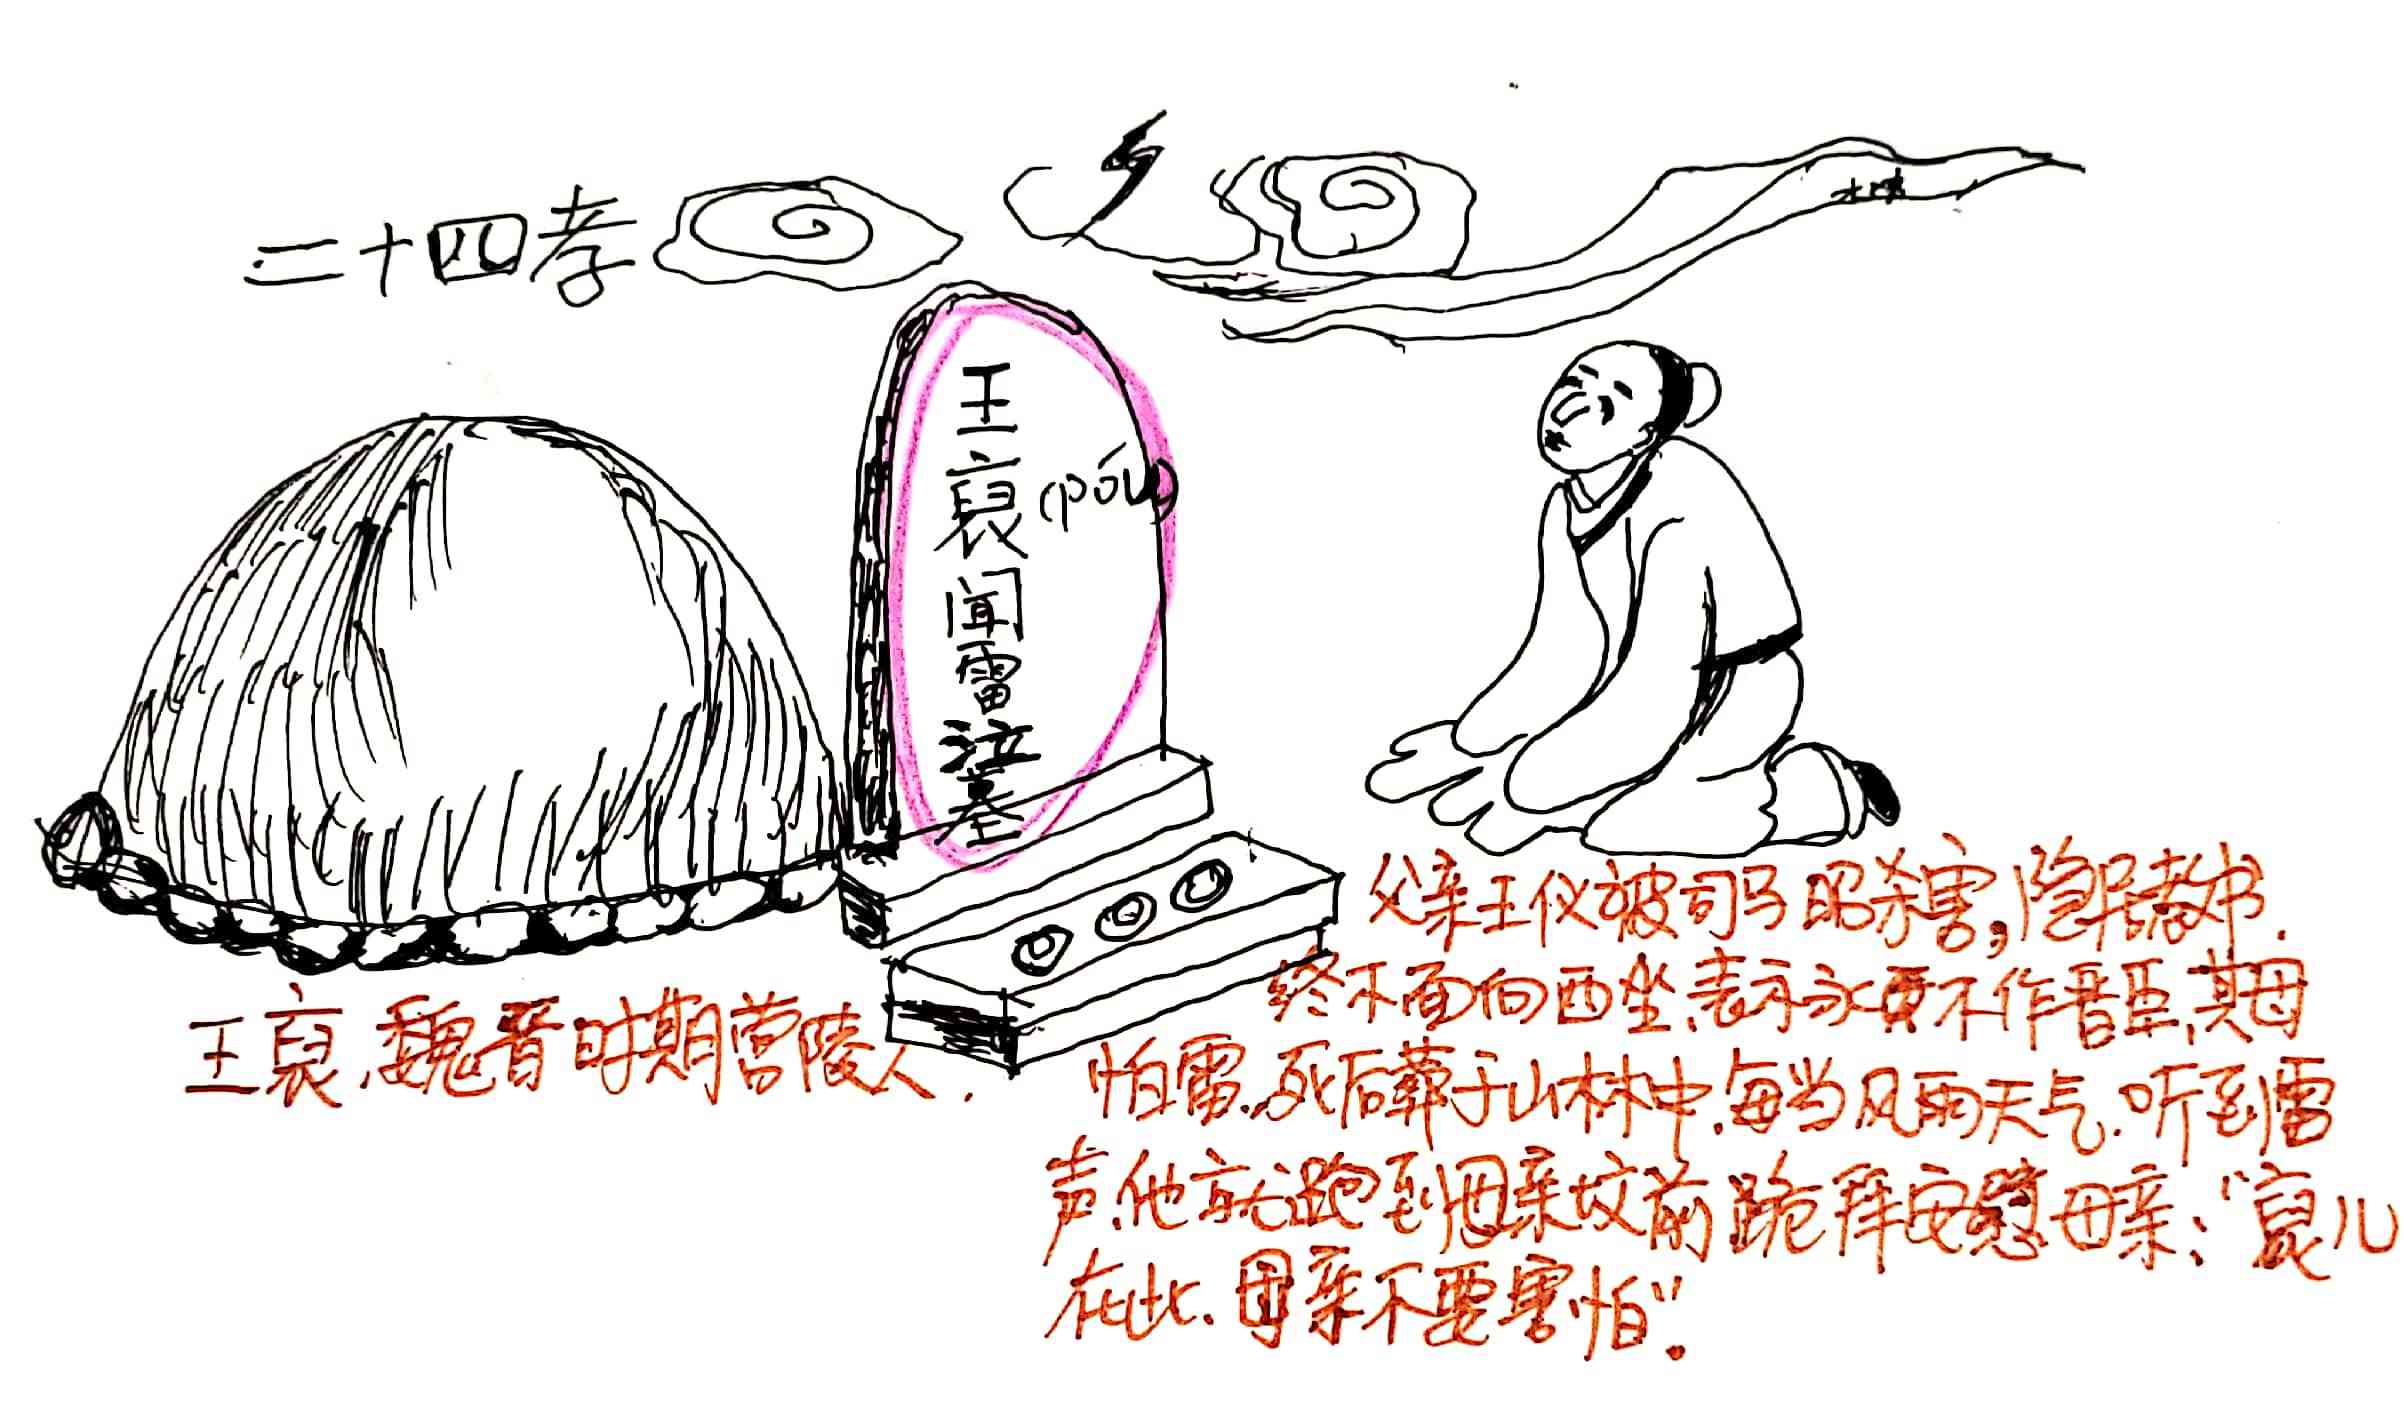 二十四孝
王裒(póu)闻雷泣墓
王裒.魏晋时期营陵人.
父亲王仪被司马昭杀害,隐居教书.
终不面向西坐.表示永不作晋臣.其母
怕雷.死后葬于山林中.每当风雨天气.听到雷
声.他就跑到母亲坟前跪拜安慰母亲:“裒儿
在此.母亲不要害怕”.